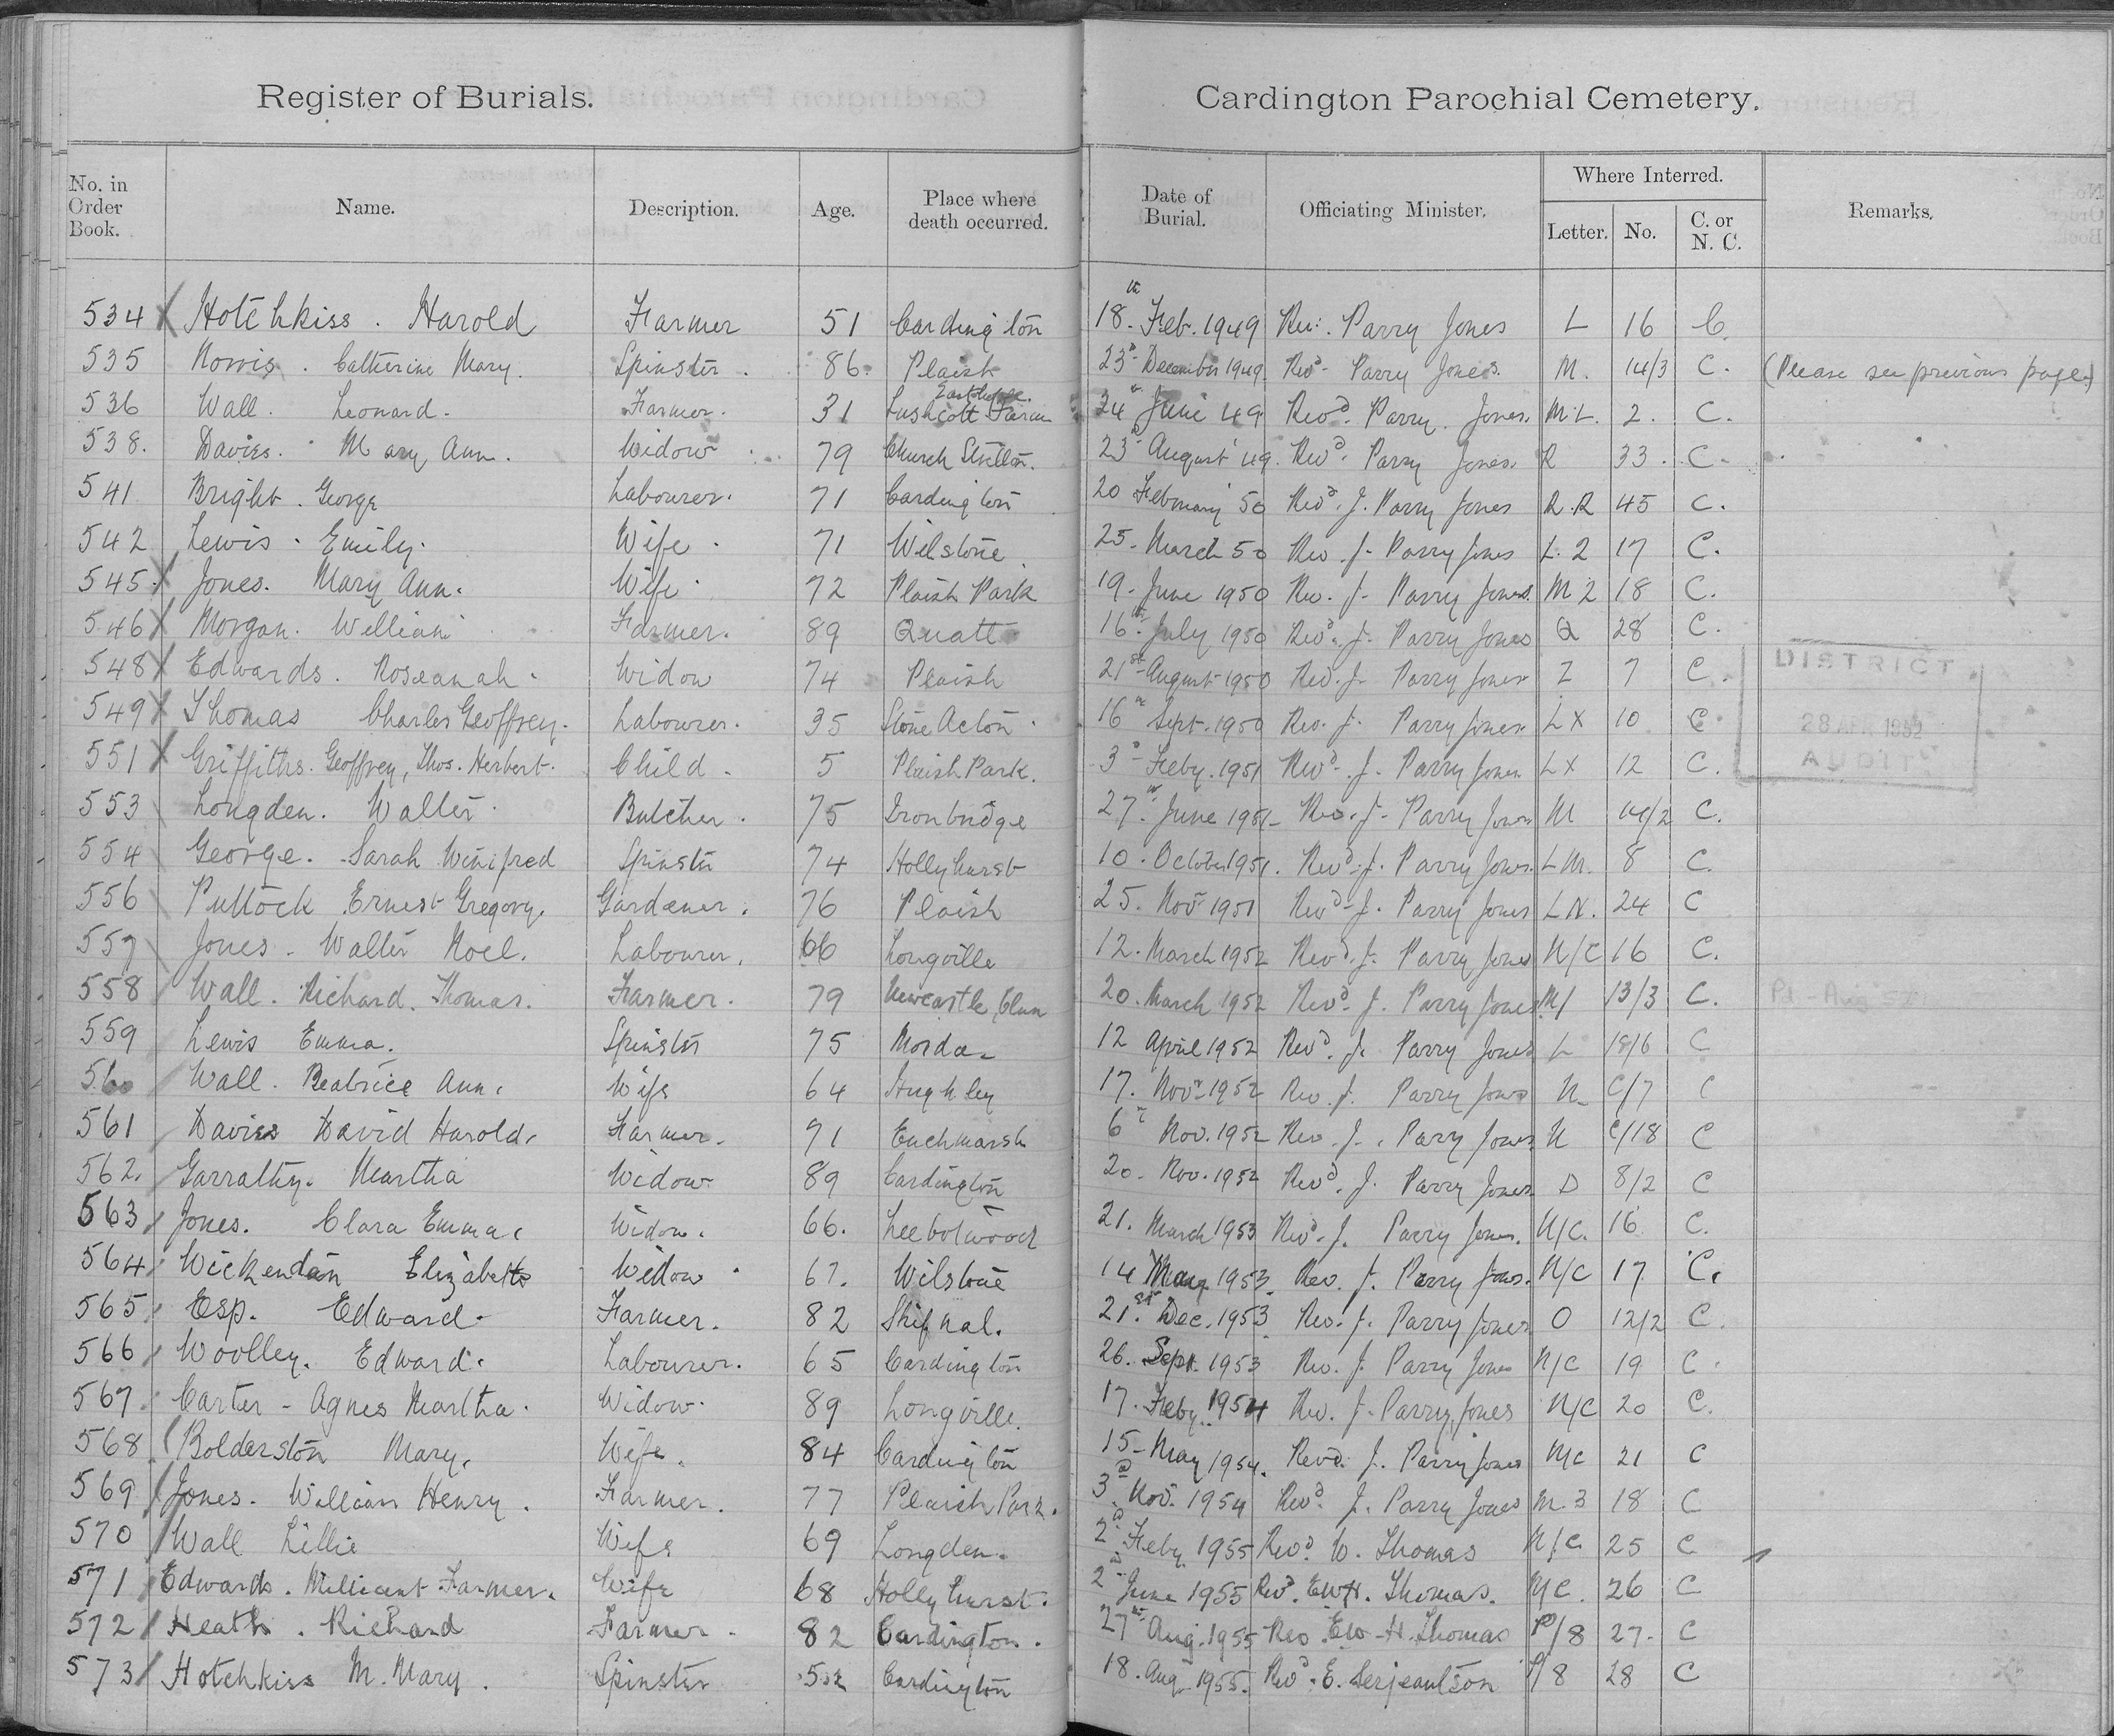 Register of Burials. Cardington Parochial Cemetery.
No. in Order Book. Name. Description. Age. Place where death occurred. Date of Burial. Officiating Minister. Where Interred. Letter. No. C. or N. C. Remarks.
534 Hotchkiss . Harold Farmer 51 Cardington 18.th Feb. 1949 Rev. Parry Jones L 16 C.
535 Norris . Catherine Mary. Spinster . 86. Plaish 23d December 1949. Revd Parry Jones. M. 14/3 C. (Please see previous page.)
536 Wall . Leonard. Farmer. 31 Lushcott Farm 24th June 49 Revd. Parry. Jones. M.L. 2. C.
538. Davies. Mary Ann. Widow 79 Church Stretton. 23d August 49. Revd. Parry Jones. R 33. C.
541 Bright . George Labourer. 71 Cardington 20 February 50 Revd. J. Parry Jones R.R 45 C.
542 Lewis . Emily. Wife . 71 Wilstone 25. March 50 Rev. J. Parry Jones L. 2 17 C.
545. Jones. Mary Ann. Wife . 72 Plaish Park 19. June 1950 Rev. J. Parry Jones. M 2 18 C.
546 Morgan. William Farmer. 89 Quatt 16th. July 1950 Revd. J. Parry Jones Q 28 C.
548 Edwards . Roseanah . Widow 74 Plaish 21st August 1950 Rev. J. Parry Jones 7 C. DISTRICT
549 Thomas Charles Geoffrey. Labourer. 35 Stone Acton . 16th Sept. 1950 Rev. J. Parry Jones. L X 10 C 28 APR 1952
551 Griffiths. Geoffrey, Thos. Herbert. Child . 5 Plaish Park. 3d Feby. 1951 Revd. J. Parry Jones L X 12 C. AUDIT
553 Longden. Walter . Butcher . 75 Ironbridge 27.th June 1951 Rev. J. Parry Jones M 14/2 C.
554 George. Sarah Winifred Spinster 74 Hollyhurst 10. October 1951. Revd. J. Parry Jones. L M. 8 C.
556 Puttock Ernest Gregory. Gardener. 76 Plaish 25. Nov 1951 Revd. J. Parry Jones L N. 24 C
557 Jones . Walter Noel. Labourer. 66 Longville 12. March 1952 Revd. J. Parry Jones N/C 16 C.
558 Wall . Richard. Thomas. Farmer. 79 Newcastle, Clun 20. March 1952 Revd. J. Parry Jones M/ 13/3 C. Pd - Aug 52
559 Lewis Emma. Spinster 75 12 April 1952 Revd. J. Parry Jones L 18/6 C
560 Wall . Beatrice Ann. Wife 64 Hughley 17. Novr 1952 Rev. J. Parry Jones N C/7 C
561 Davies David Harold. Farmer. 71 Enchmarsh 6th Nov. 1952 Rev. J. Parry Jones. N C/18 C
562. Garralty. Martha Widow 89 Cardington 20. Nov. 1952 Revd. J. Parry Jones D 8/2 C
563 Jones. Clara Emma. Widow. 66. Leebotwood 21. March 1953 Revd. J. Parry Jones. N/C. 16 C.
564 Wickendan Elizabeth Widow 67. Wilstone 14 May 1953. Rev. J. Parry Jones. N/C 17 C.
565. Esp. Edward. Farmer. 82 Shifnal. 21.st Dec. 1953 Rev. J. Parry Jones O 12/2 C.
566 Woolley. Edward. Labourer. 65 Cardington 26. Sept. 1953 Rev. J. Parry Jones N/C 19 C.
567. Carter - Agnes Martha. Widow. 89 Longville. 17. Feby. 1954 Rev. J. Parry Jones N/C 20 C.
568 Bolderston Mary. Wife. 84 Cardington 15 May 1954. Revd. J. Parry Jones N/C 21 C
569 Jones. William Henry . Farmer. 77 Plaish Park. 3d. Nov. 1954 Revd. J. Parry Jones M. 3 18 C
570 Wall Lillie Wife 69 Longden. 2d Feby. 1955 Revd. W. Thomas N/C 25 C
571 Edwards . Millicent Farmer. Wife 68 Hollyhurst. 2d June 1955 Revd. E.W.H. Thomas. N/C. 26 C
572 Heath . Richard Farmer . 82 Cardington . 27th Aug. 1955 Rev. E.W.H. Thomas P/8 27. C
573 Hotchkiss M. Mary . Spinster 52 Cardington 18. Aug 1955. Revd. E. Serjeantson P/8 28 C